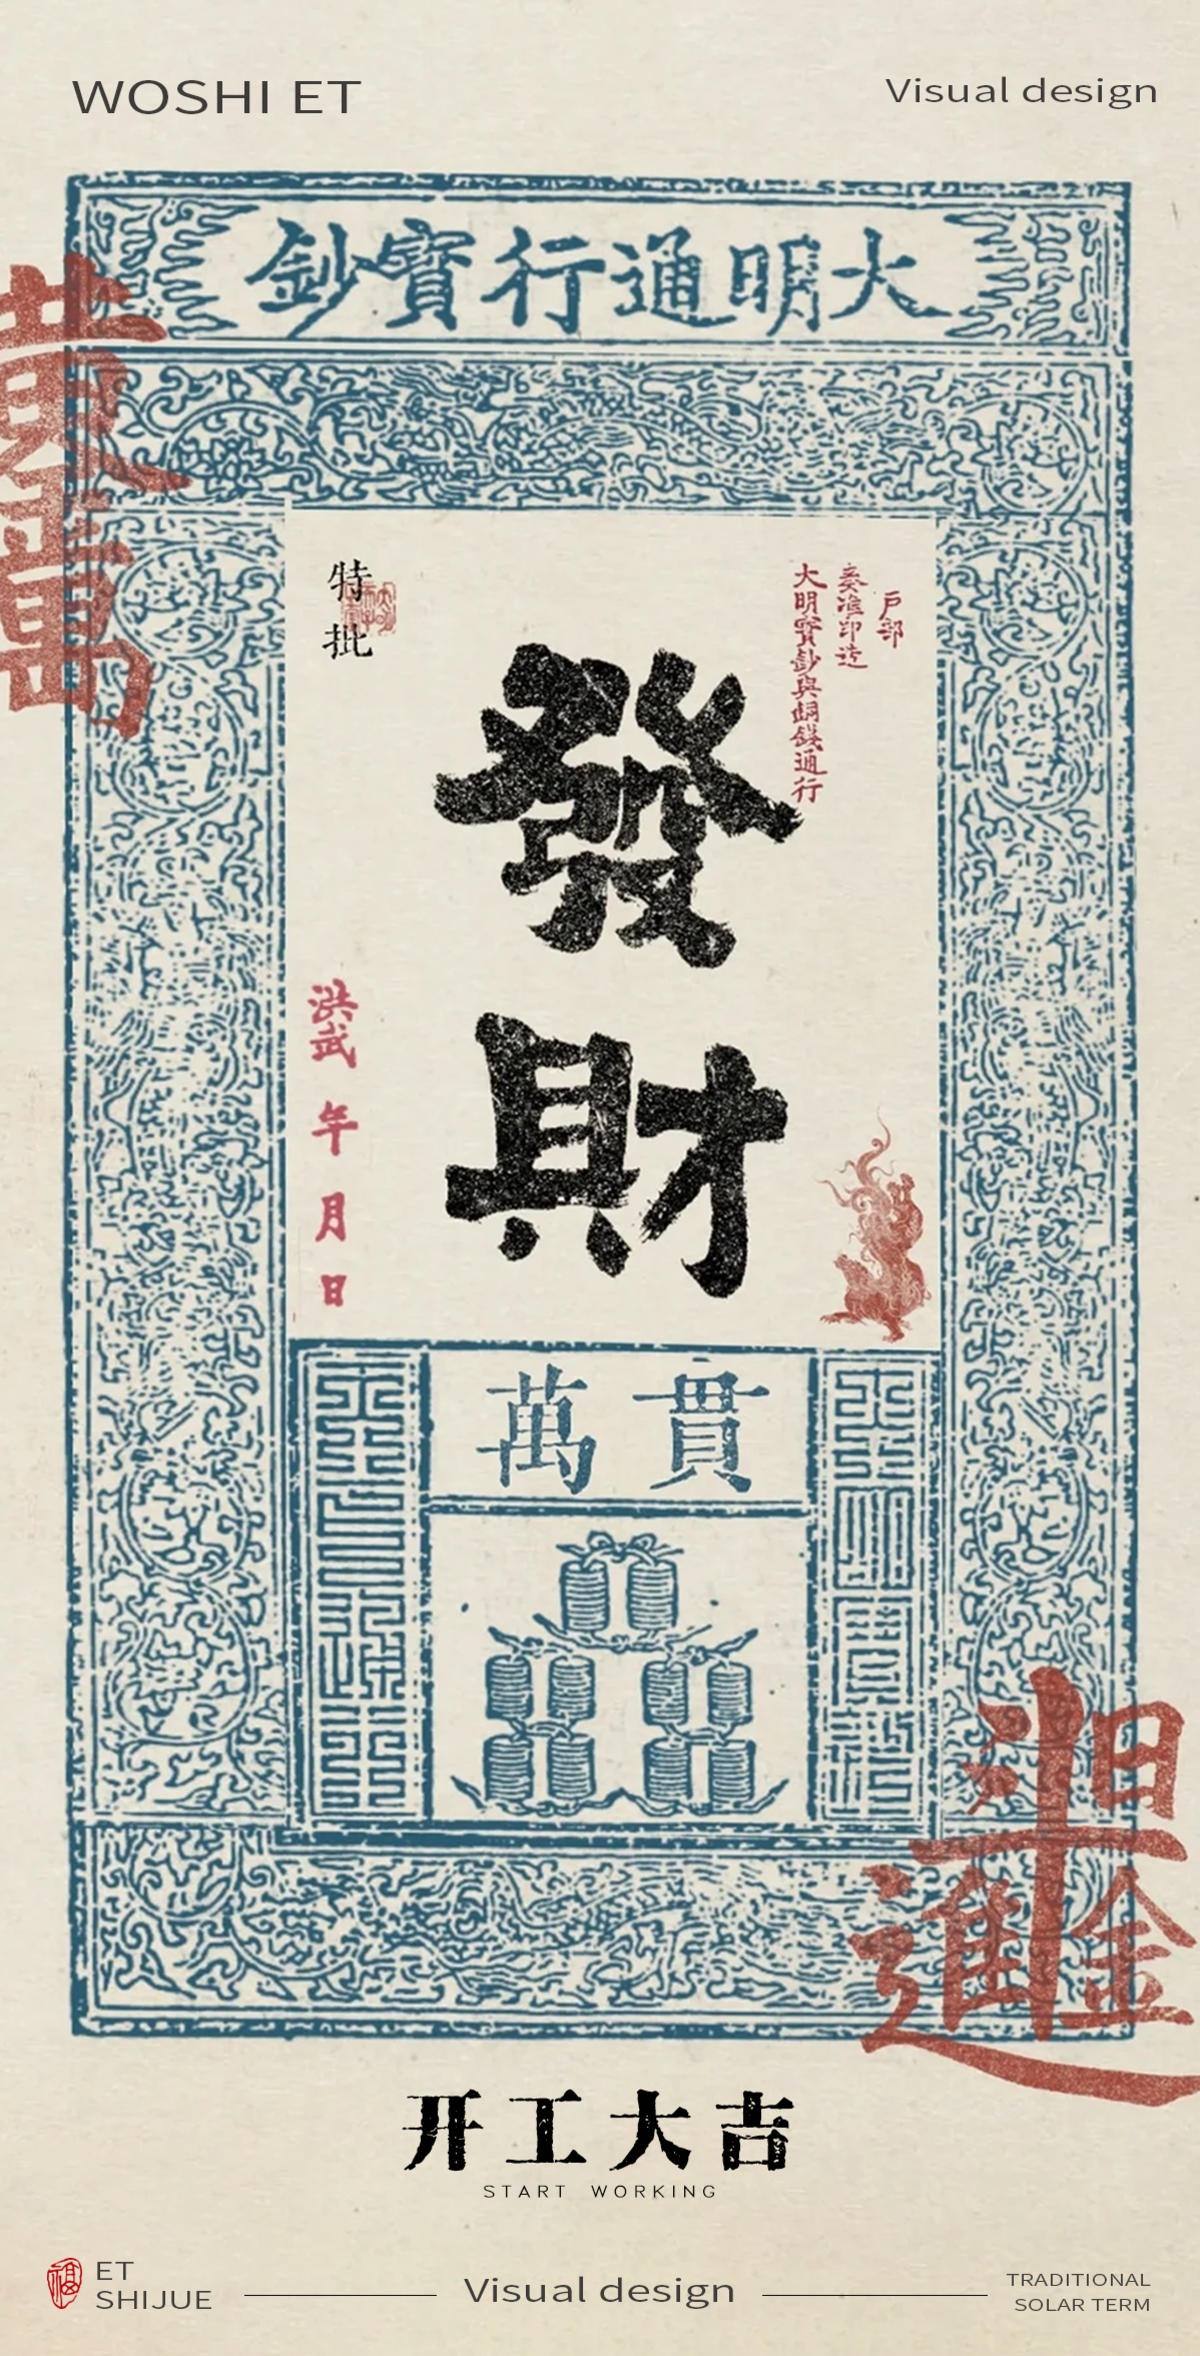 WOSHI ET
Visual design
大明通行寶鈔
戶部
奏准印造
大明寶鈔與銅錢通行
特批
發財
洪武 年 月 日
貫萬
黄金萬
日進斗金
开工大吉
START WORKING
福
ET
SHIJUE
Visual design
TRADITIONAL
SOLAR TERM